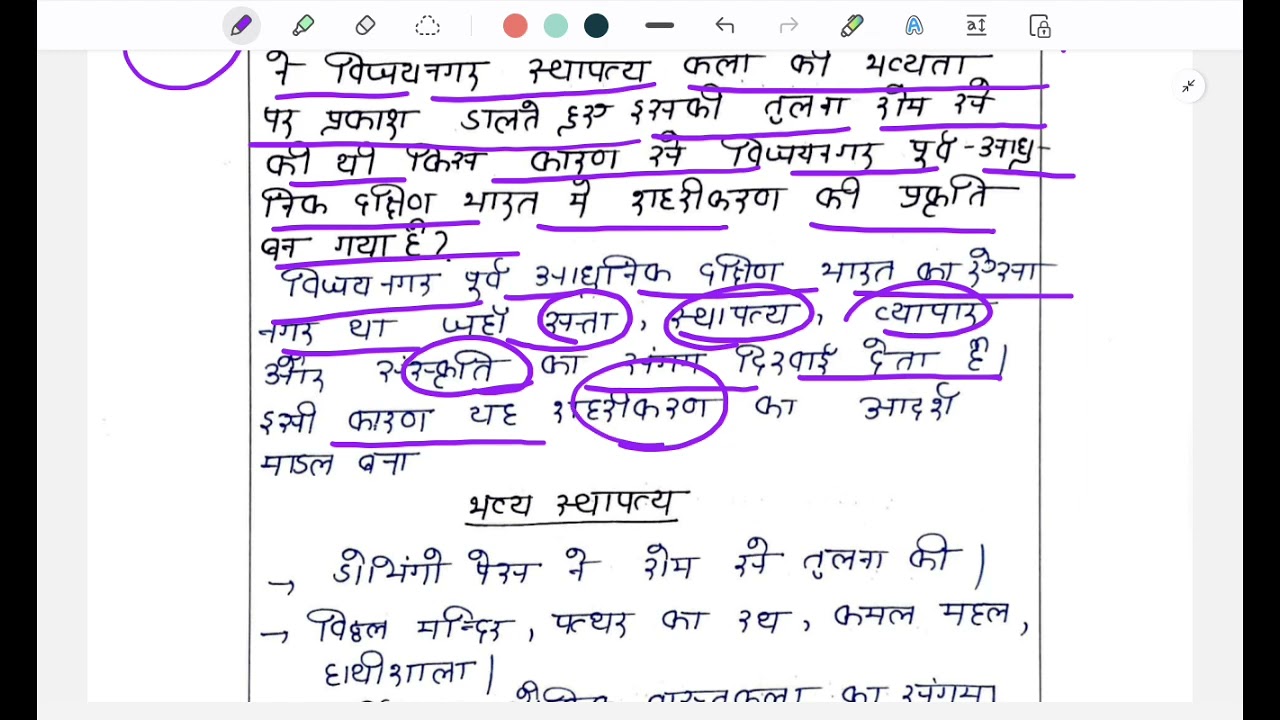 ने विजयनगर स्थापत्य कला की भव्यता
पर प्रकाश डालते हुए इसकी तुलना रोम से
की थी किस कारण से विजयनगर पूर्व-आधु-
निक दक्षिण भारत में शहरीकरण की प्रकृति
बन गया है?
विजयनगर पूर्व आधुनिक दक्षिण भारत का ऐसा
नगर था जहाँ सत्ता, स्थापत्य, व्यापार
और संस्कृति का संगम दिखाई देता है।
इसी कारण यह शहरीकरण का आदर्श
माडल बना
भव्य स्थापत्य
→ डोमिंगो पेस ने रोम से तुलना की।
→ विठ्ठल मन्दिर, पत्थर का रथ, कमल महल,
हाथीशाला।
वास्तुकला का संगम